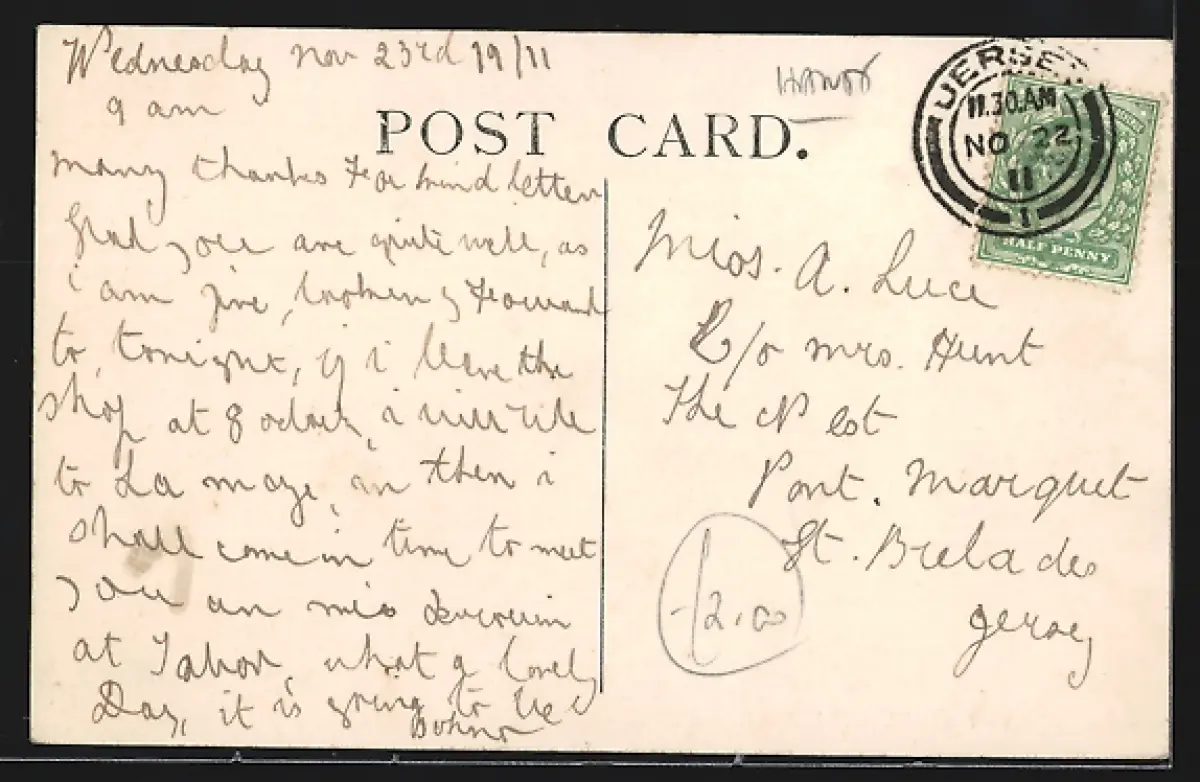 Wednesday Nov 23rd 19/11
9 am
POST CARD.
JERSEY
11.30.AM
NO 22
11
1
HALF PENNY
many thanks For kind letter
Glad you are quite well, as
i am fine, looking Forward
to, tonight, if i leave the
shop at 8 oclock, i will ride
to La moye, an then i
shall come in time to meet
you an mis
at Tabor, what a lovely
Day, it is going to be
Miss. A. Luce
C/o mrs. Hunt
The Nest
Pont. Marquet
St. Brelades
Jersey
12.00